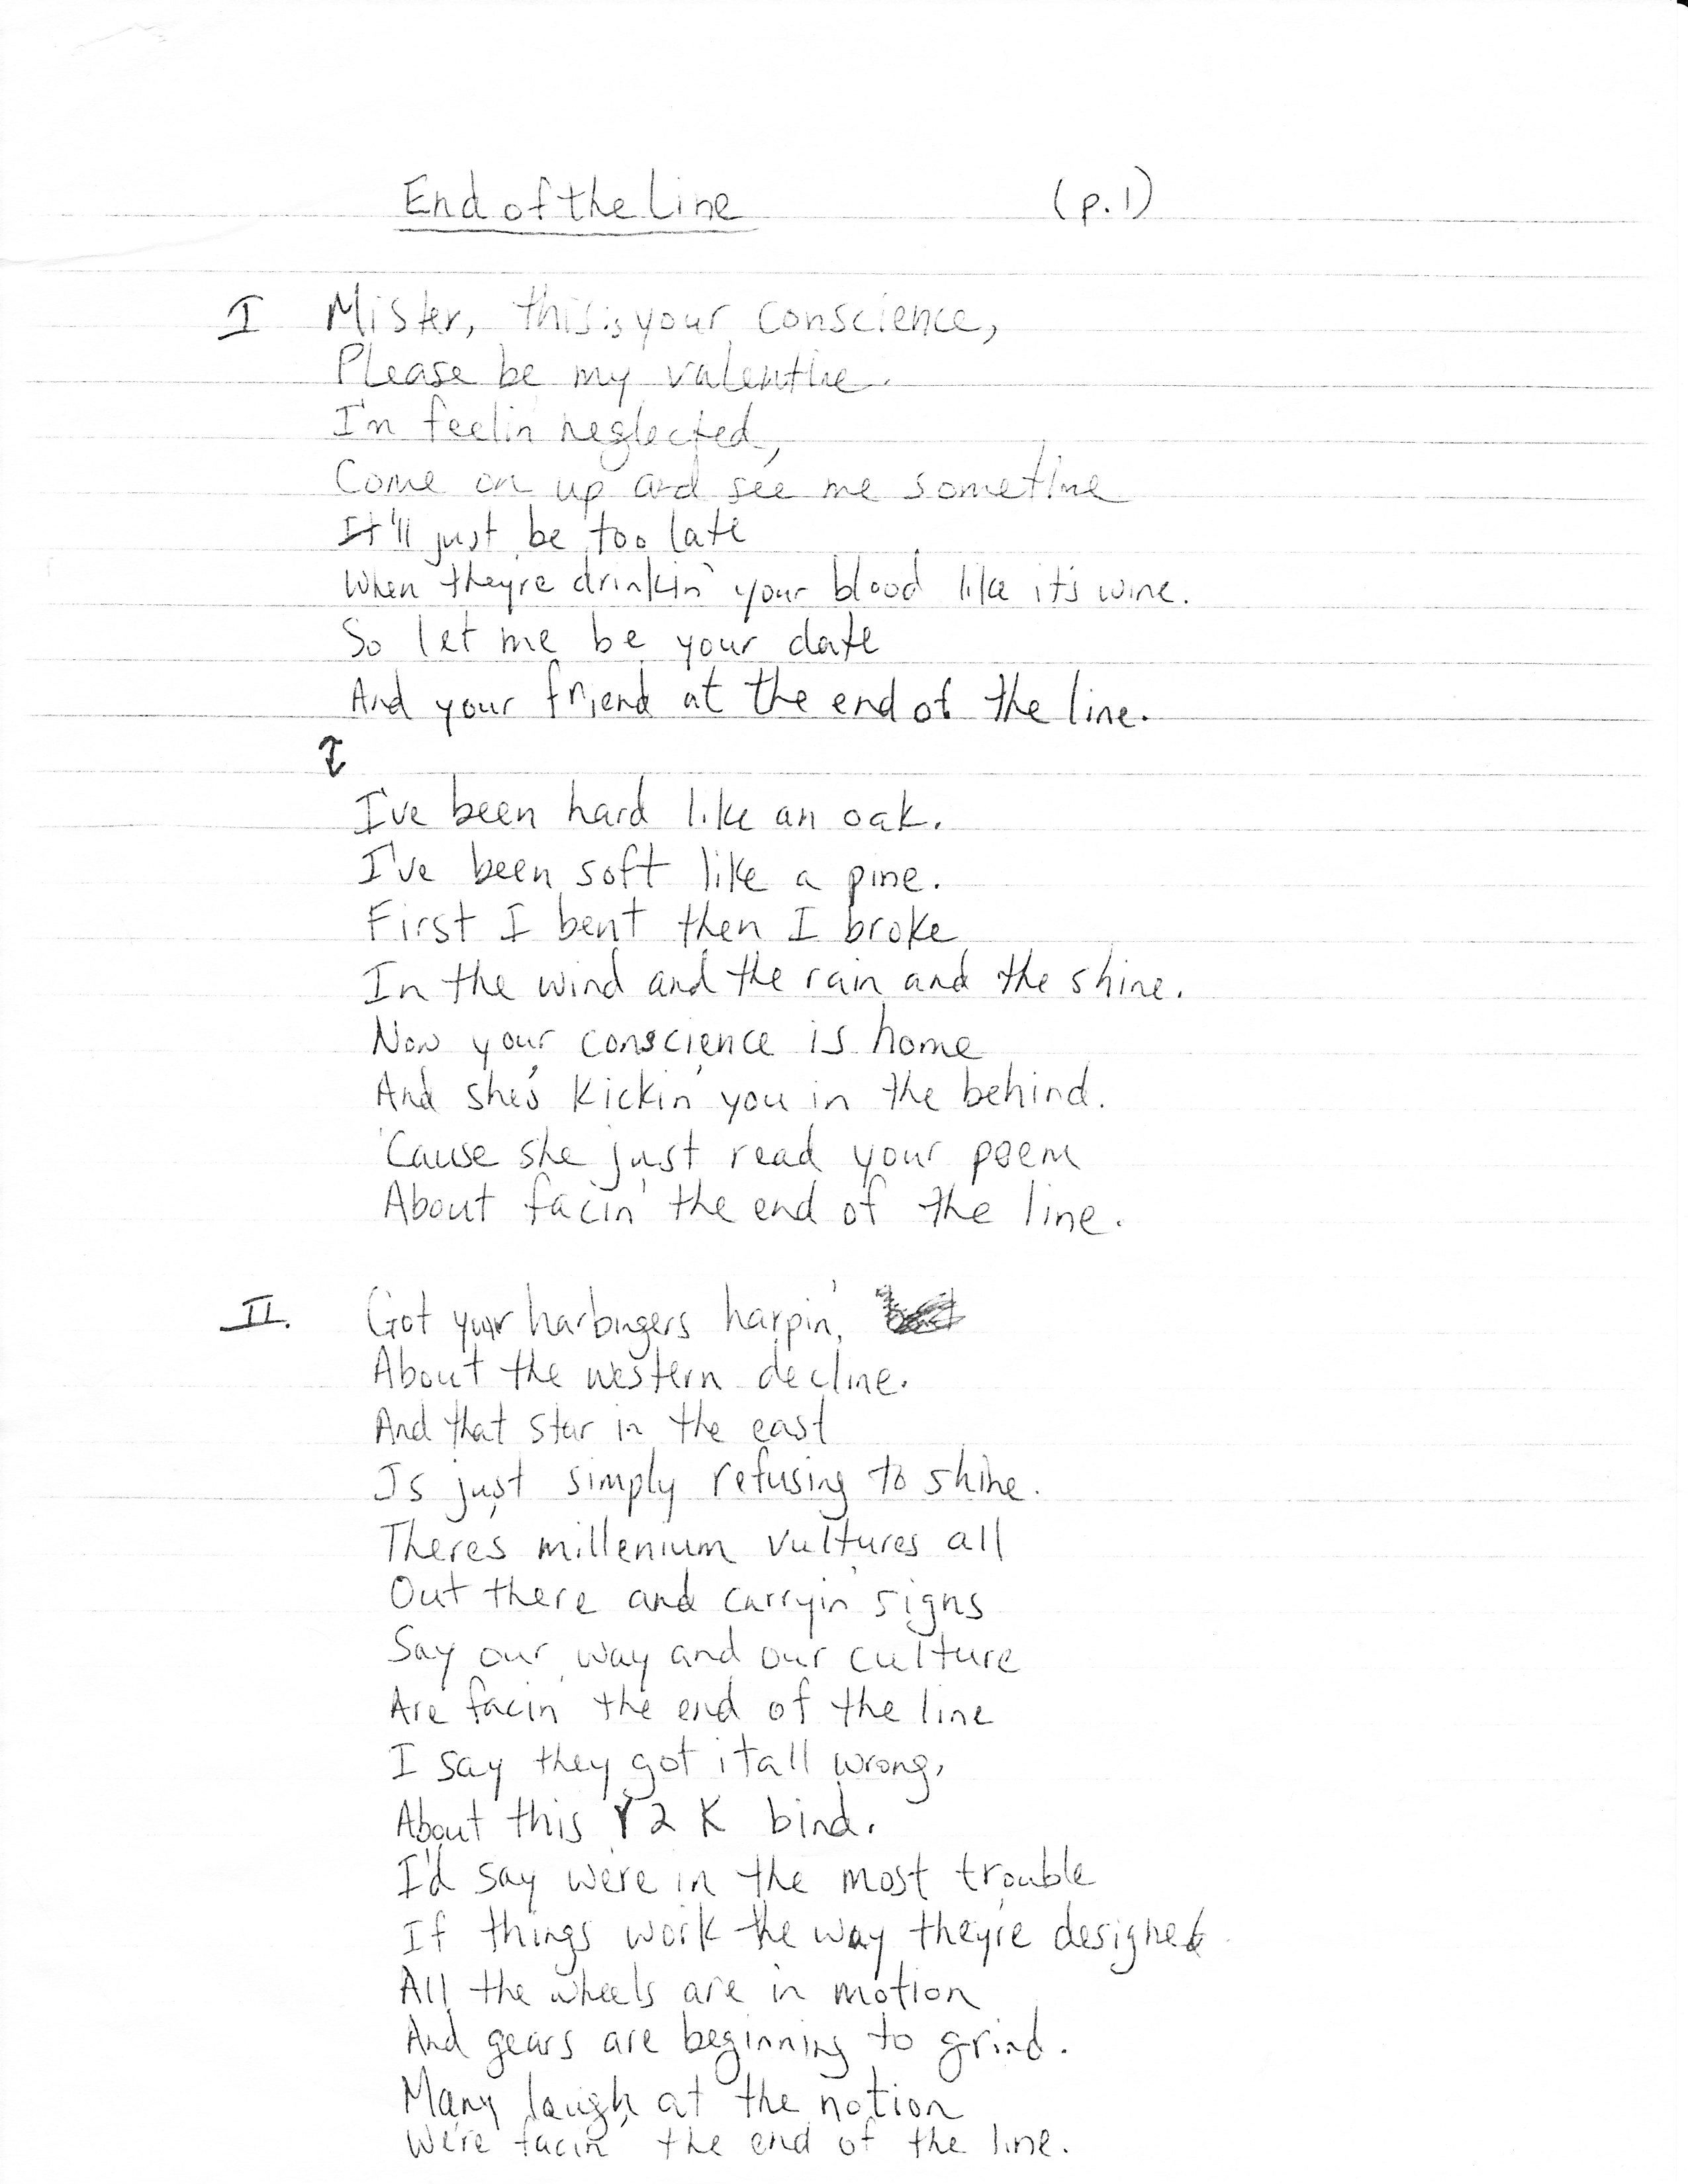 End of the Line (p.1)
I Mister, this is your conscience,
Please be my valentine.
I'm feelin' neglected,
Come on up and see me sometime
It'll just be too late
When they're drinkin' your blood like it's wine.
So let me be your date
And your friend at the end of the line.
I've been hard like an oak.
I've been soft like a pine.
First I bent then I broke
In the wind and the rain and the shine.
Now your conscience is home
And she's kickin' you in the behind.
'Cause she just read your poem
About facin' the end of the line.
II. Got your harbingers harpin',
About the western decline.
And that star in the east
Is just simply refusing to shine.
There's millenium vultures all
Out there and carryin' signs
Say our way and our culture
Are facin' the end of the line
I say they got it all wrong,
About this Y2K bind.
I'd say we're in the most trouble
If things work the way they're designed
All the wheels are in motion
And gears are beginning to grind.
Many laugh at the notion
We're facin' the end of the line.